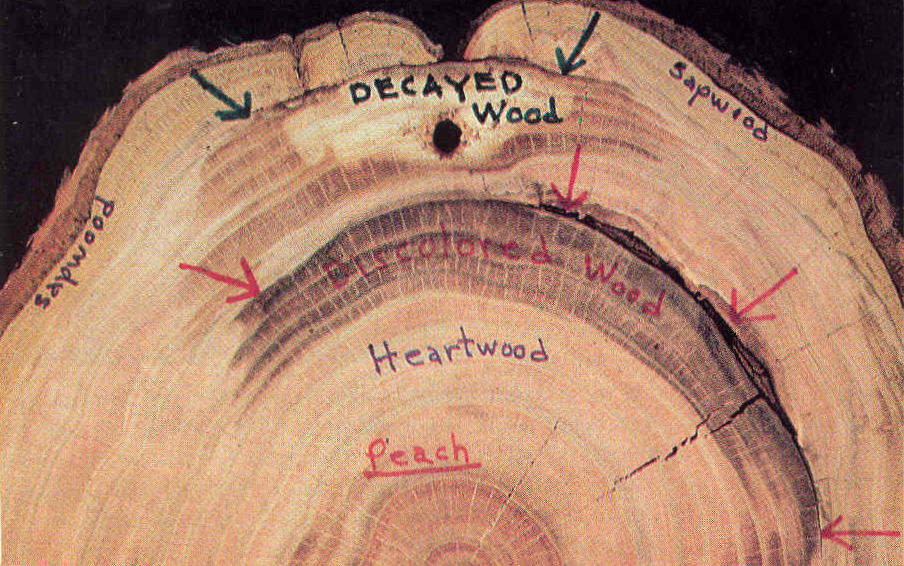 DECAYED
Wood
sapwood
sapwood
Discolored Wood
Heartwood
Peach